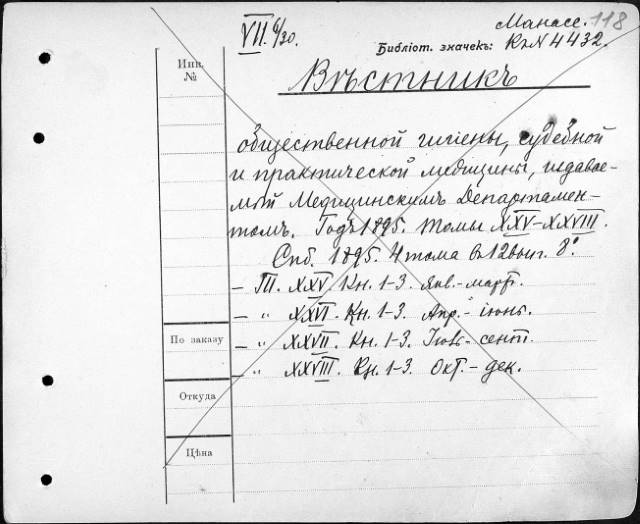 VII. 6/30.
Манасс. 118
Библіот. значекъ: Къ N 4432.
Инв. №
Вѣстникъ
общественной гигіены, судебной
и практической медицины, издавае-
мый Медицинскимъ Департамен-
томъ. Годъ 1895. Томы XXV–XXVIII.
Спб. 1895. 4 тома въ 12 вып. 8°.
– Т. XXV. Кн. 1-3. Янв.-мартъ.
– " XXVI. Кн. 1-3. Апр.-іюнь.
По заказу
– " XXVII. Кн. 1-3. Іюль-сент.
– " XXVIII. Кн. 1-3. Окт.-дек.
Откуда
Цѣна